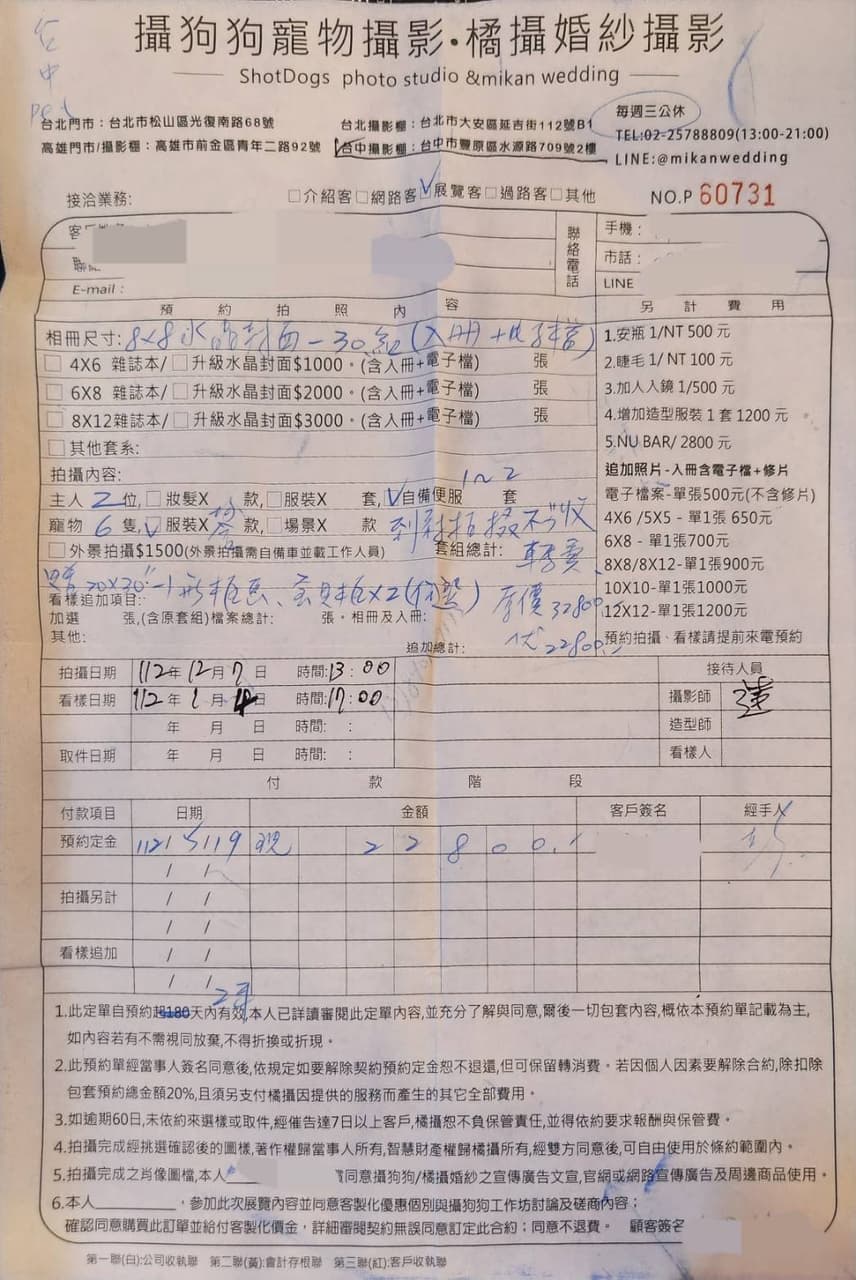 在
中
攝狗狗寵物攝影·橘攝婚紗攝影
ShotDogs photo studio &mikan wedding
每週三公休
台北門市：台北市松山區光復南路68號 台北攝影棚：台北市大安區延吉街112號B1
TEL:02-25788809(13:00-21:00)
高雄門市/攝影棚：高雄市前金區青年二路92號 台中攝影棚：台中市豐原區水源路709號2樓
LINE:@mikanwedding
接洽業務: □介紹客□網路客□展覽客□過路客□其他 NO.P 60731
聯絡電話
手機：
市話：
E-mail：
LINE
預約拍照內容
另計費用
相冊尺寸: 8x8水晶封面-30組(入冊+電子檔)
1.安瓶 1/NT 500 元
□ 4X6 雜誌本/□升級水晶封面$1000。(含入冊+電子檔) 張
2.睫毛 1/ NT 100 元
□ 6X8 雜誌本/□升級水晶封面$2000。(含入冊+電子檔) 張
3.加人入鏡 1/500 元
□ 8X12雜誌本/□升級水晶封面$3000。(含入冊+電子檔) 張
4.增加造型服裝 1 套 1200 元
□其他套系:
5.NU BAR/ 2800 元
拍攝內容:
追加照片-入冊含電子檔+修片
主人 2 位,□妝髮X 款,□服裝X 套,✓自備便服 1~2 套
電子檔案-單張500元(不含修片)
寵物 6 隻,✓服裝X 款,□場景X 款
4X6 /5X5 - 單1張 650元
□外景拍攝$1500(外景拍攝需自備車並載工作人員) 套組總計:
6X8 - 單1張700元
8X8/8X12-單1張900元
看樣追加項目: 原價32800
10X10-單1張1000元
加選 張,(含原套組)檔案總計: 張。相冊及入冊:
12X12-單1張1200元
其他: 追加總計: 22800
預約拍攝、看樣請提前來電預約
拍攝日期 112年 12月 7 日 時間:13：00 接待人員
看樣日期 112年 1 月 日 時間:17：00 攝影師 蓮
年 月 日 時間: ： 造型師
取件日期 年 月 日 時間: ： 看樣人
付款階段
付款項目 日期 金額 客戶簽名 經手人
預約定金 112/5/19 現 2 2 8 0 0
/ /
拍攝另計 / /
/ /
看樣追加 / /
/ /
2年
1.此定單自預約起180天內有效,本人已詳讀審閱此定單內容,並充分了解與同意,爾後一切包套內容,概依本預約單記載為主,
如內容若有不需視同放棄,不得折換或折現。
2.此預約單經當事人簽名同意後,依規定如要解除契約預約定金恕不退還,但可保留轉消費。若因個人因素要解除合約,除扣除
包套預約總金額20%,且須另支付橘攝因提供的服務而產生的其它全部費用。
3.如逾期60日,未依約來選樣或取件,經催告達7日以上客戶,橘攝恕不負保管責任,並得依約要求報酬與保管費。
4.拍攝完成經挑選確認後的圖樣,著作權歸當事人所有,智慧財產權歸橘攝所有,經雙方同意後,可自由使用於條約範圍內。
5.拍攝完成之肖像圖檔,本人 同意攝狗狗/橘攝婚紗之宣傳廣告文宣,官網或網路宣傳廣告及周邊商品使用。
6.本人________，參加此次展覽內容並同意客製化優惠個別與攝狗狗工作坊討論及磋商內容；
確認同意購買此訂單並給付客製化價金，詳細審閱契約無誤同意訂定此合約；同意不退費。 顧客簽名
第一聯(白):公司收執聯 第二聯(黃):會計存根聯 第三聯(紅):客戶收執聯